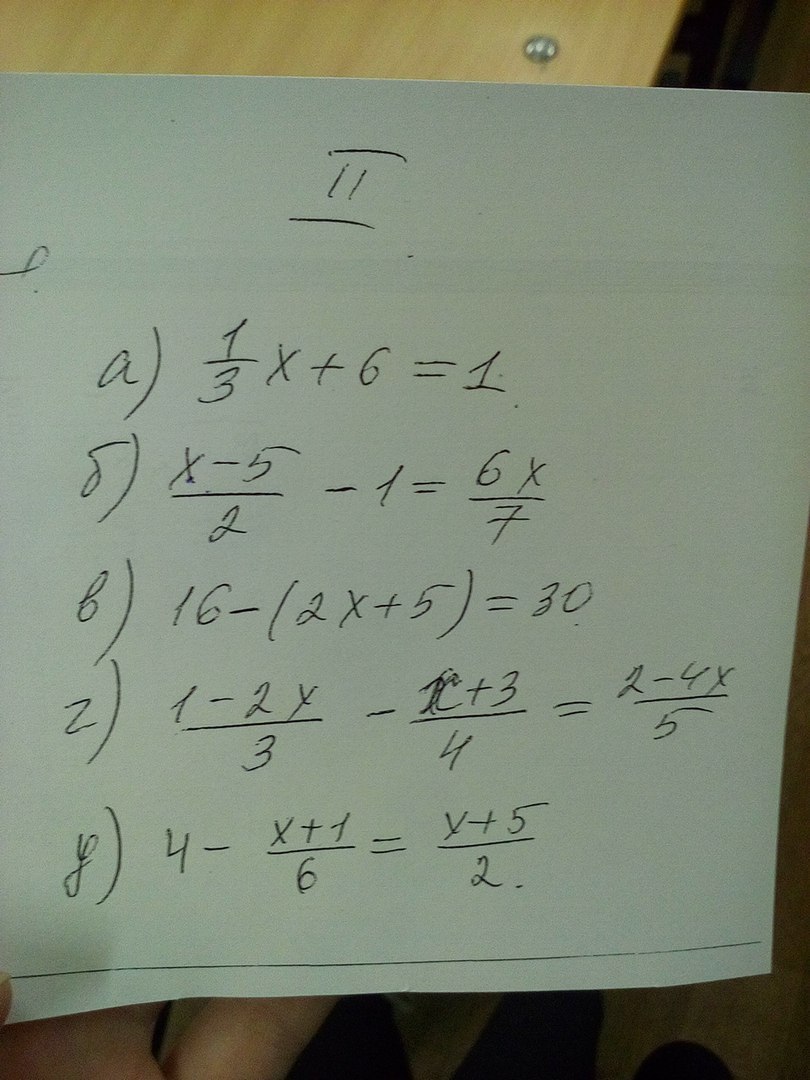 II
а) 1/3 x + 6 = 1.
б) (x - 5)/2 - 1 = 6x/7
в) 16 - (2x + 5) = 30.
г) (1 - 2x)/3 - (x + 3)/4 = (2 - 4x)/5
д) 4 - (x + 1)/6 = (x + 5)/2.